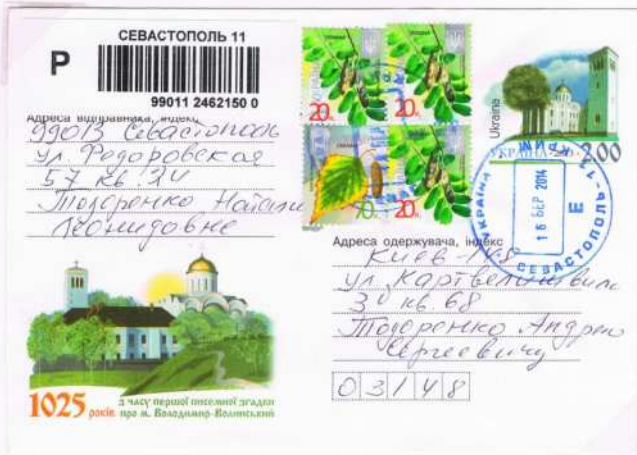 СЕВАСТОПОЛЬ 11
Р
99011 2462150 0
Адреса відправника, індекс
99013 Севастополь
ул. Федоровская
57 кв. 34
Тодоренко Наталии
Леонидовне
20к
20к
20к
Ukraine
УКРАЇНА
2.00
УКРАЇНА
КРИМ
СЕВАСТОПОЛЬ-11
16 БЕР 2014
Е
Адреса одержувача, індекс
Киев-148
ул. Картвелишвили
3 кв. 68
Тодоренко Андрею
Сергеевичу
03148
1025 років з часу першої писемної згадки
про м. Володимир-Волинський